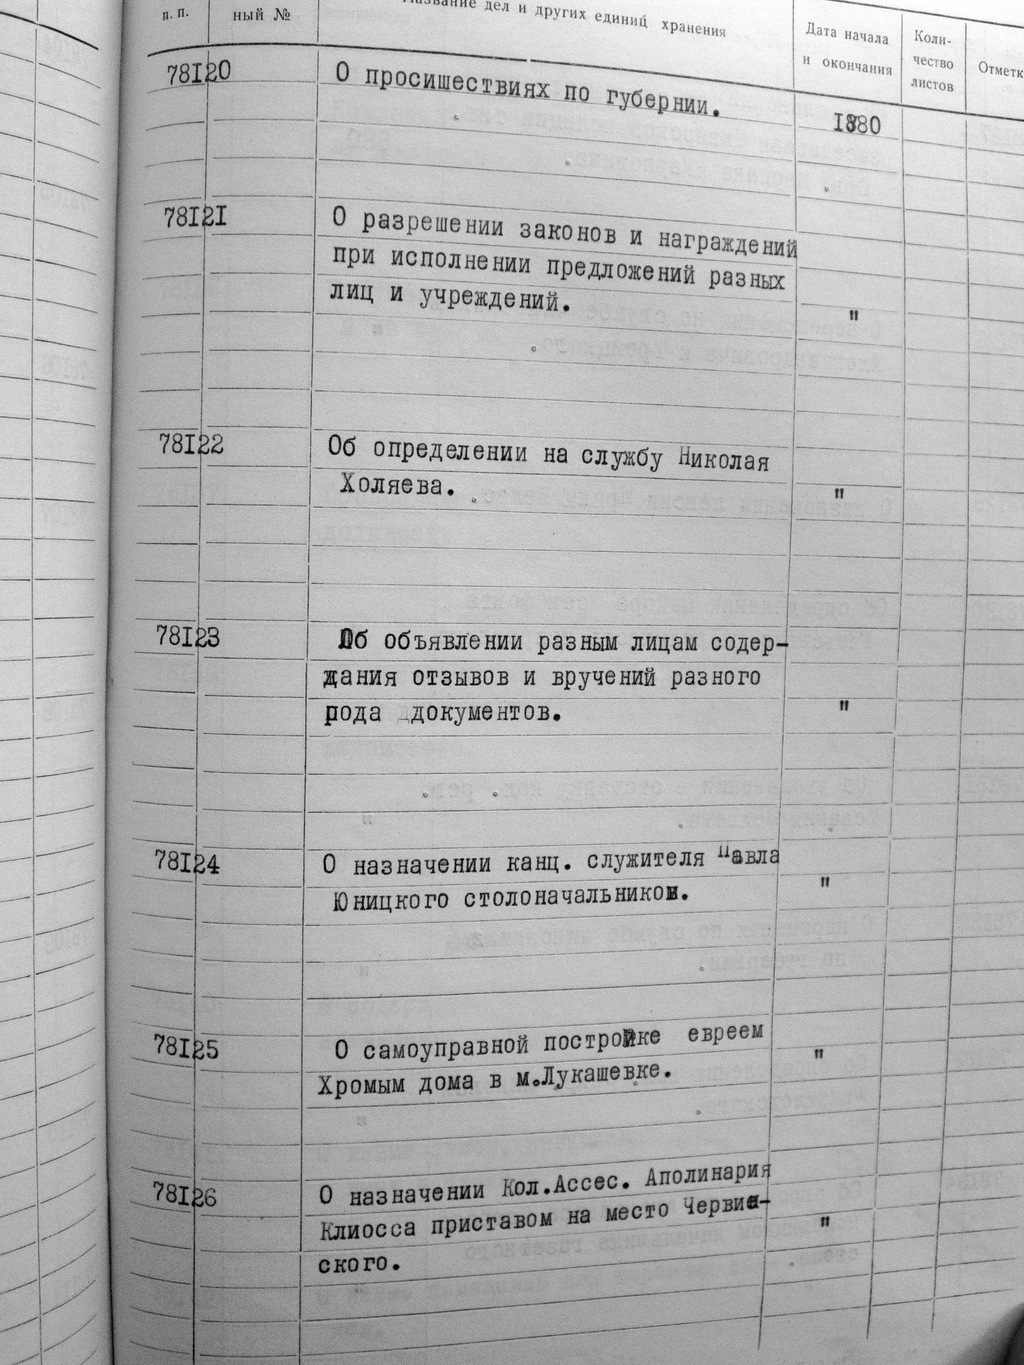 п. п.
ный №
Название дел и других единиц хранения
Дата начала
и окончания
Коли-
чество
листов
Отметк
78I20
О просишествиях по губернии.
I880
78I2I
О разрешении законов и награждений
при исполнении предложений разных
лиц и учреждений.
"
78I22
Об определении на службу Николая
Холяева.
"
78I23
Об объявлении разным лицам содер-
дания отзывов и вручений разного
рода ддокументов.
"
78I24
О назначении канц. служителя Павла
Юницкого столоначальником.
"
78I25
О самоуправной постройке евреем
Хромым дома в м.Лукашевке.
"
78I26
О назначении Кол.Ассес. Аполинария
Клиосса приставом на место Червин-
ского.
"